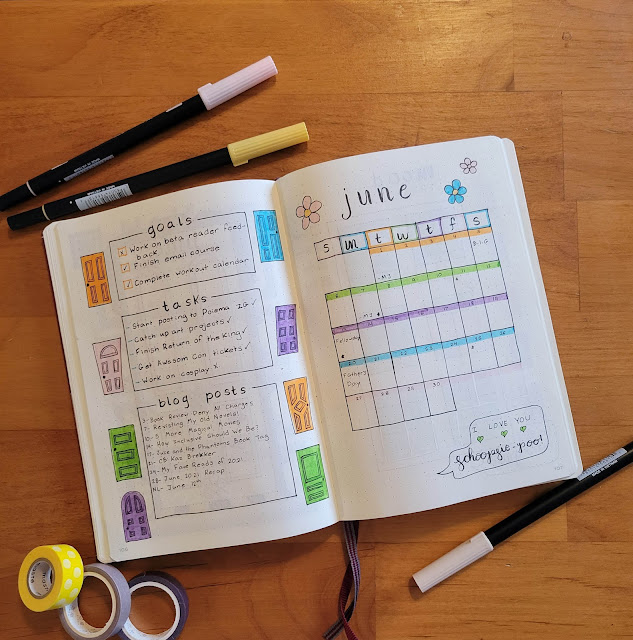 goals
x Work on beta reader feed-
back
✓ Finish email course
✓ Complete workout calendar
tasks
- Start posting to Poiema IG ✓
- Catch up art projects ✓
- Finish Return of the King ✓
- Get Awesom Con tickets ✓
- Work on cosplay x
blog posts
Book Review Deny All Charges
Revisting My Old Novels!
5 More Magical Movies
How Inclusive Should We Be?
Julie and the Phantoms Book Tag
CB: Kaz Brekker
My Fave Reads of 2021
June 2021 Recap
NL- June
june
s m t w t f s
Fellowship
Father's
Day
27 28 29 30
I LOVE YOU
schoojzie-poo!